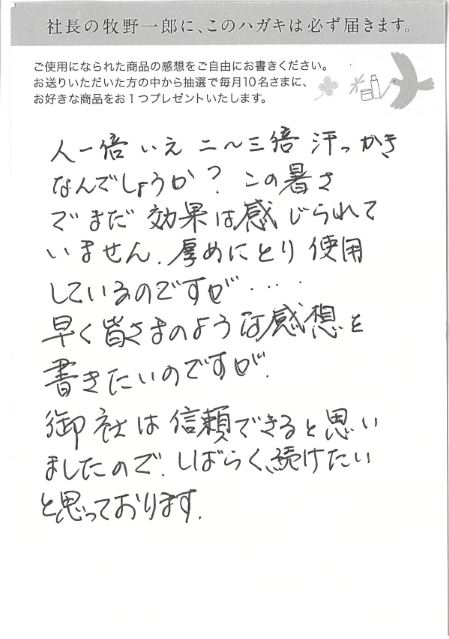 社長の牧野一郎に、このハガキは必ず届きます。
ご使用になられた商品の感想をご自由にお書きください。
お送りいただいた方の中から抽選で毎月10名さまに、
お好きな商品をお1つプレゼントいたします。
人一倍いえ二〜三倍汗っかき
なんでしょうか？この暑さ
でまだ効果は感じられて
いません.厚めにとり使用
しているのですが・・・・
早く皆さまのような感想を
書きたいのですが.
御社は信頼できると思い
ましたので.しばらく、続けたい
と思っております.